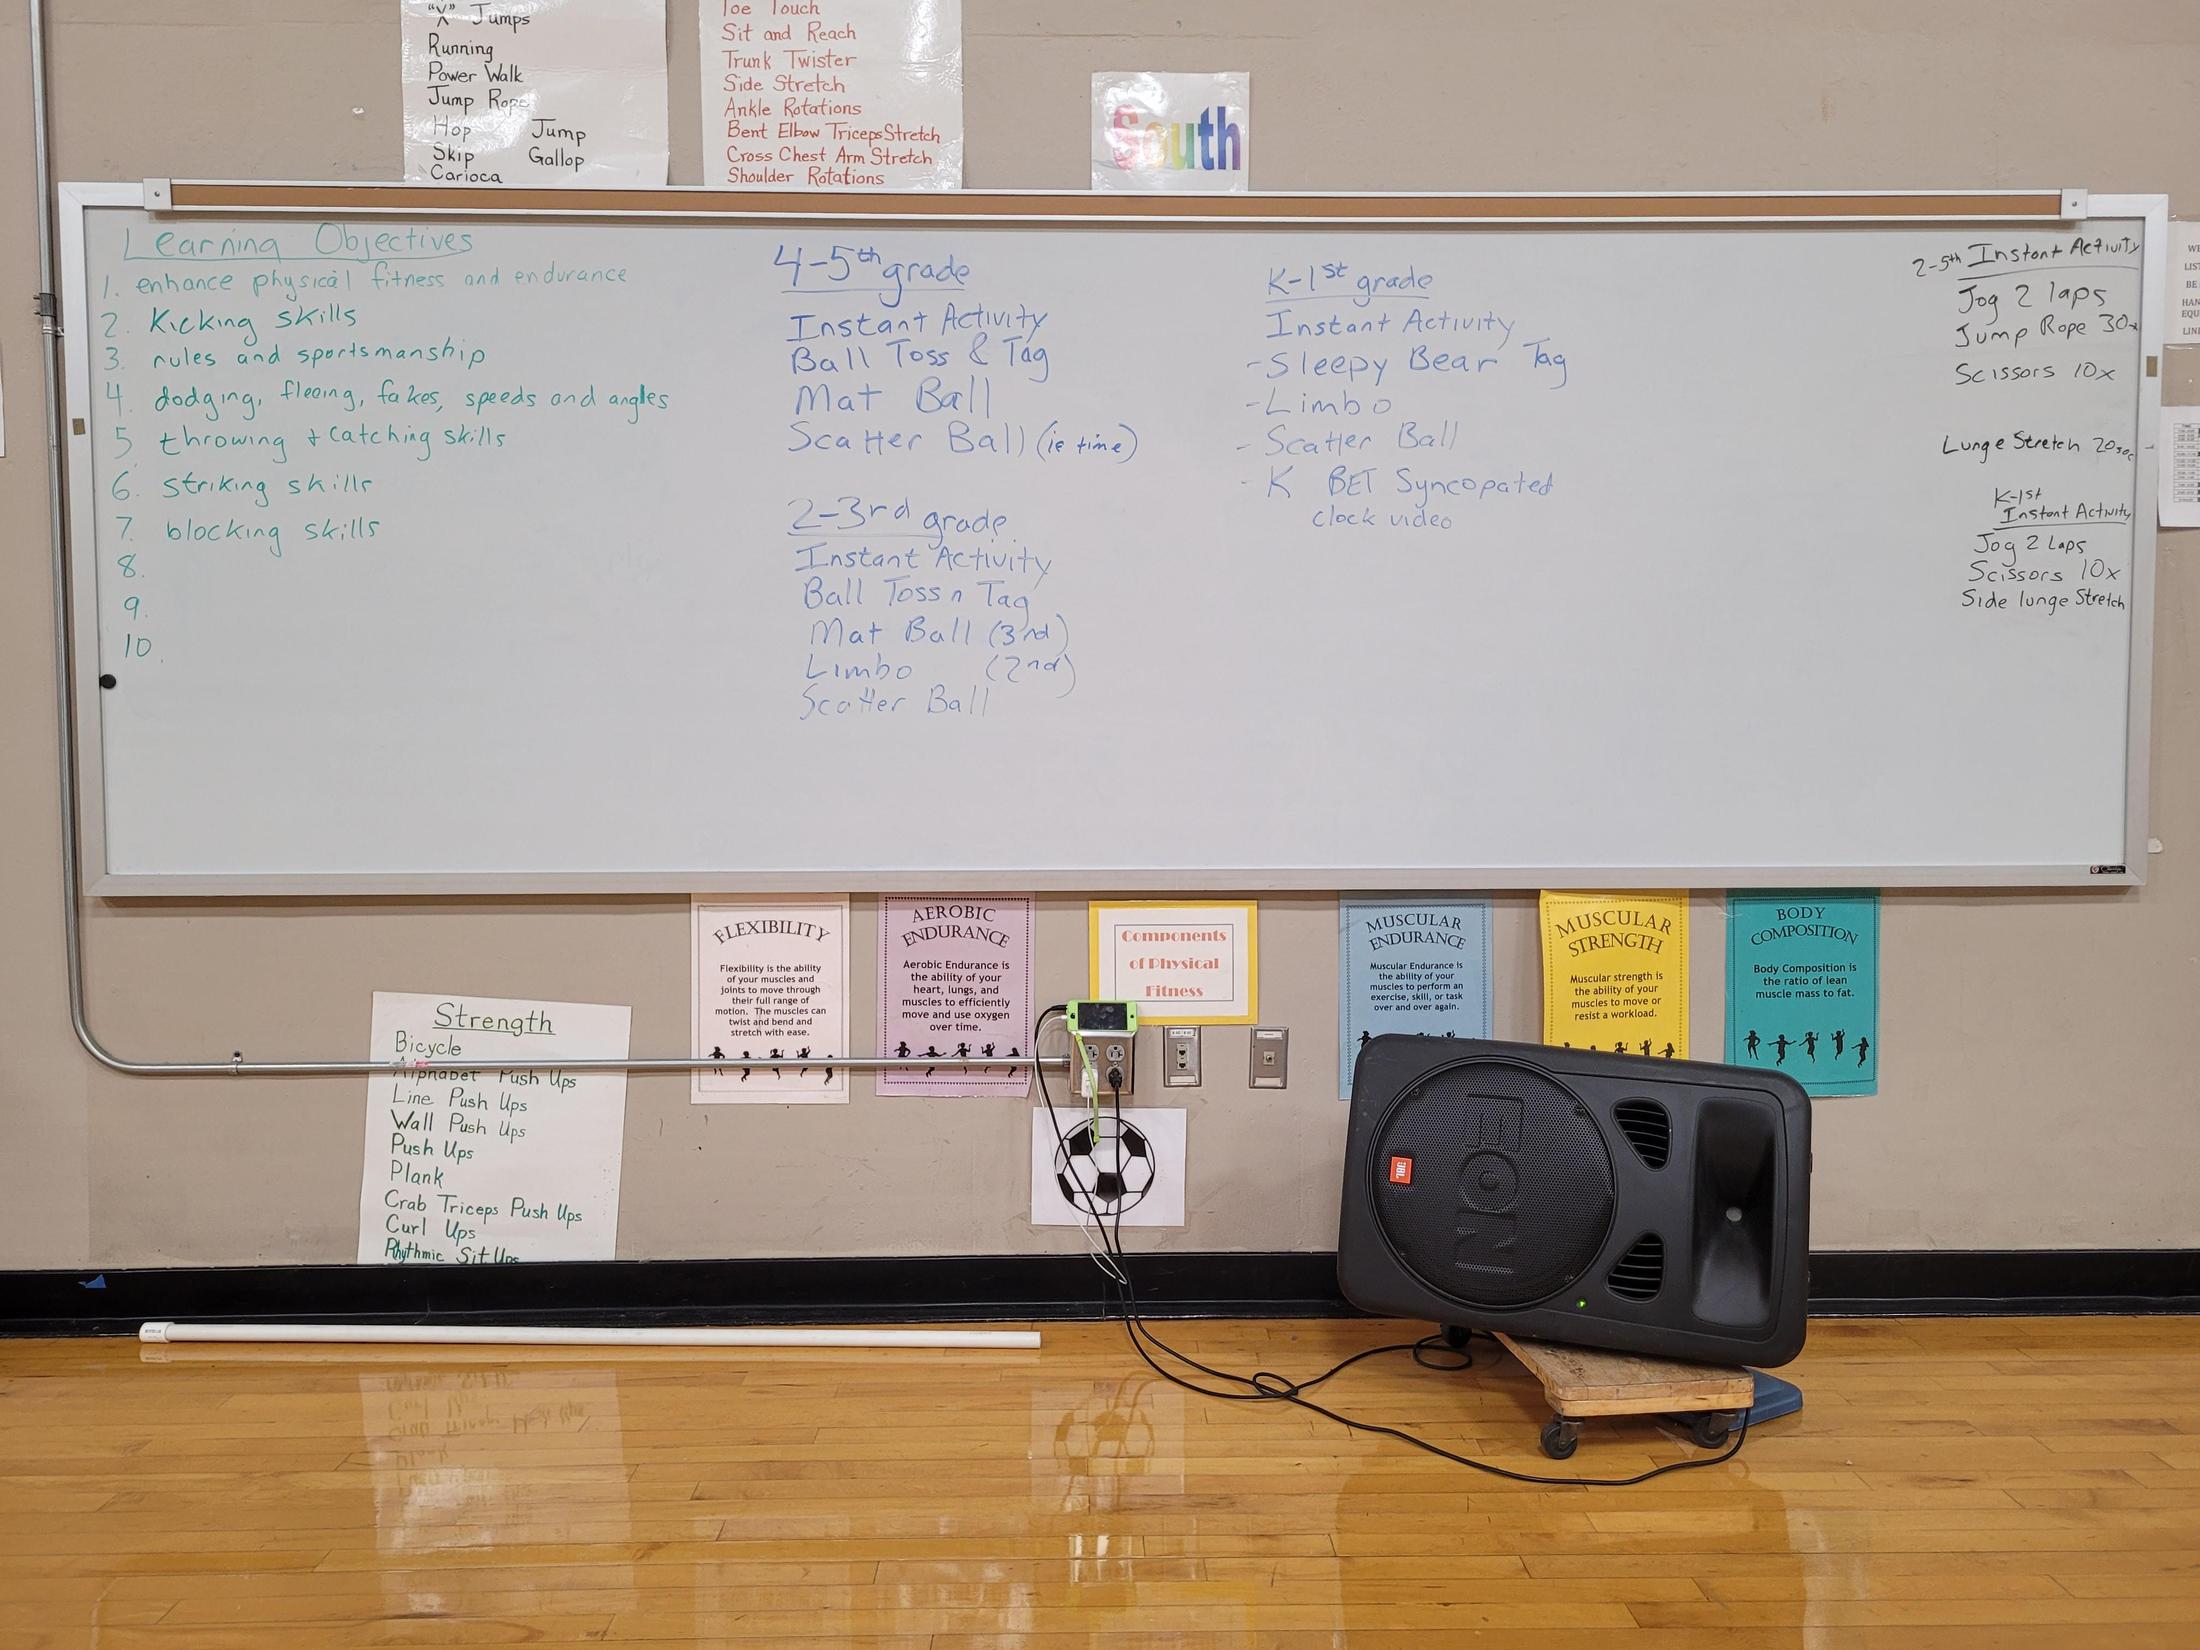 "X" Jumps
Running
Power Walk
Jump Rope
Hop Jump
Skip Gallop
Carioca
Toe Touch
Sit and Reach
Trunk Twister
Side Stretch
Ankle Rotations
Bent Elbow Triceps Stretch
Cross Chest Arm Stretch
Shoulder Rotations
South
Learning Objectives
1. enhance physical fitness and endurance
2. Kicking skills
3. rules and sportsmanship
4. dodging, fleeing, fakes, speeds and angles
5 throwing + catching skills
6. striking skills
7. blocking skills
8.
9.
10.
4-5th grade
Instant Activity
Ball Toss & Tag
Mat Ball
Scatter Ball (ie time)
2-3rd grade
Instant Activity
Ball Toss n Tag
Mat Ball (3rd)
Limbo (2nd)
Scatter Ball
K-1st grade
Instant Activity
-Sleepy Bear Tag
-Limbo
- Scatter Ball
- K BET Syncopated
clock video
2-5th Instant Activity
Jog 2 laps
Jump Rope 30x
Scissors 10x
Lunge Stretch 20sec
K-1st
Instant Activity
Jog 2 Laps
Scissors 10x
Side lunge Stretch
Strength
Bicycle
Alphabet Push Ups
Line Push Ups
Wall Push Ups
Push Ups
Plank
Crab Triceps Push Ups
Curl Ups
Rhythmic Sit Ups
FLEXIBILITY
Flexibility is the ability
of your muscles and
joints to move through
their full range of
motion. The muscles can
twist and bend and
stretch with ease.
AEROBIC
ENDURANCE
Aerobic Endurance is
the ability of your
heart, lungs, and
muscles to efficiently
move and use oxygen
over time.
Components
of Physical
Fitness
MUSCULAR
ENDURANCE
Muscular Endurance is
the ability of your
muscles to perform an
exercise, skill, or task
over and over again.
MUSCULAR
STRENGTH
Muscular strength is
the ability of your
muscles to move or
resist a workload.
BODY
COMPOSITION
Body Composition is
the ratio of lean
muscle mass to fat.
JBL
EON